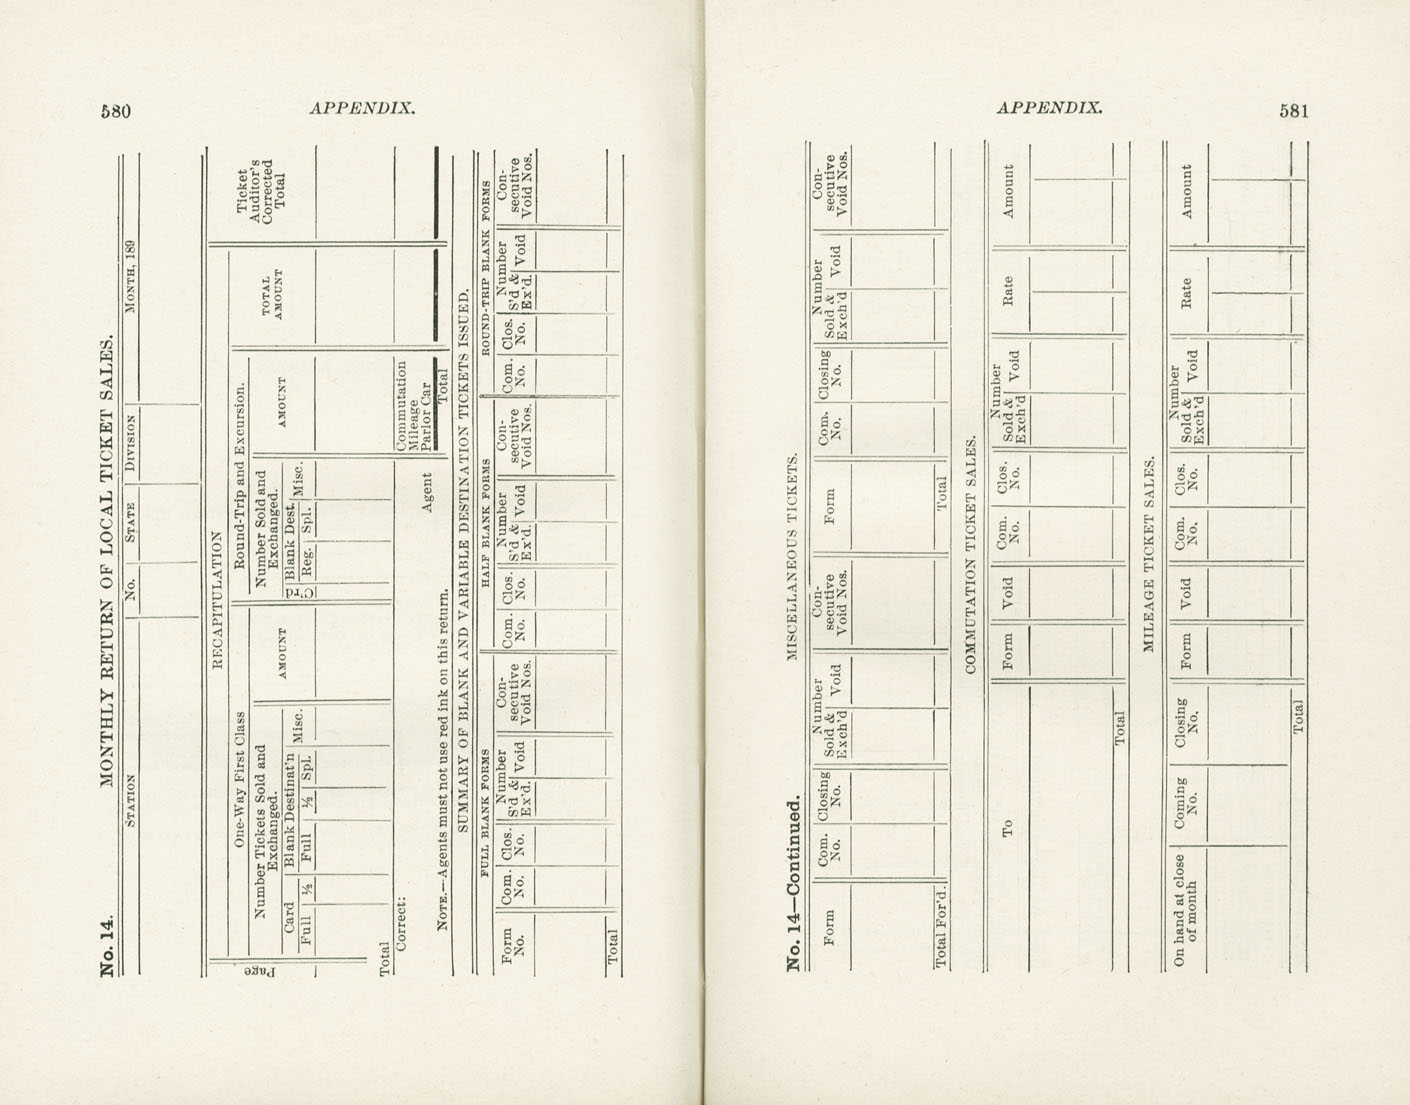 580
APPENDIX.
No. 14. MONTHLY RETURN OF LOCAL TICKET SALES.
STATION No. STATE DIVISION MONTH, 189
RECAPITULATION
Page
One-Way First Class Round-Trip and Excursion. TOTAL AMOUNT Ticket Auditor's Corrected Total
Number Tickets Sold and Exchanged. AMOUNT Number Sold and Exchanged. AMOUNT
Card Blank Destinat'n Misc. C'rd Blank Dest. Misc.
Full ½ Full ½ Spl. Reg. Spl.
Total
Correct: Agent
Commutation
Mileage
Parlor Car
Total
NOTE.—Agents must not use red ink on this return.
SUMMARY OF BLANK AND VARIABLE DESTINATION TICKETS ISSUED.
FULL BLANK FORMS HALF BLANK FORMS ROUND-TRIP BLANK FORMS
Form No. Com. No. Clos. No. Number S'd & Ex'd. Void Con-secutive Void Nos. Com. No. Clos. No. Number S'd & Ex'd. Void Con-secutive Void Nos. Com. No. Clos. No. Number S'd & Ex'd. Void Con-secutive Void Nos.
Total
APPENDIX.
581
No. 14—Continued. MISCELLANEOUS TICKETS.
Form Com. No. Closing No. Number Sold & Exch'd Void Con-secutive Void Nos. Form Com. No. Closing No. Number Sold & Exch'd Void Con-secutive Void Nos.
Total For'd. Total
COMMUTATION TICKET SALES.
To Form Void Com. No. Clos. No. Number Sold & Exch'd Void Rate Amount
Total
MILEAGE TICKET SALES.
On hand at close of month Coming No. Closing No. Form Void Com. No. Clos. No. Number Sold & Exch'd Void Rate Amount
Total